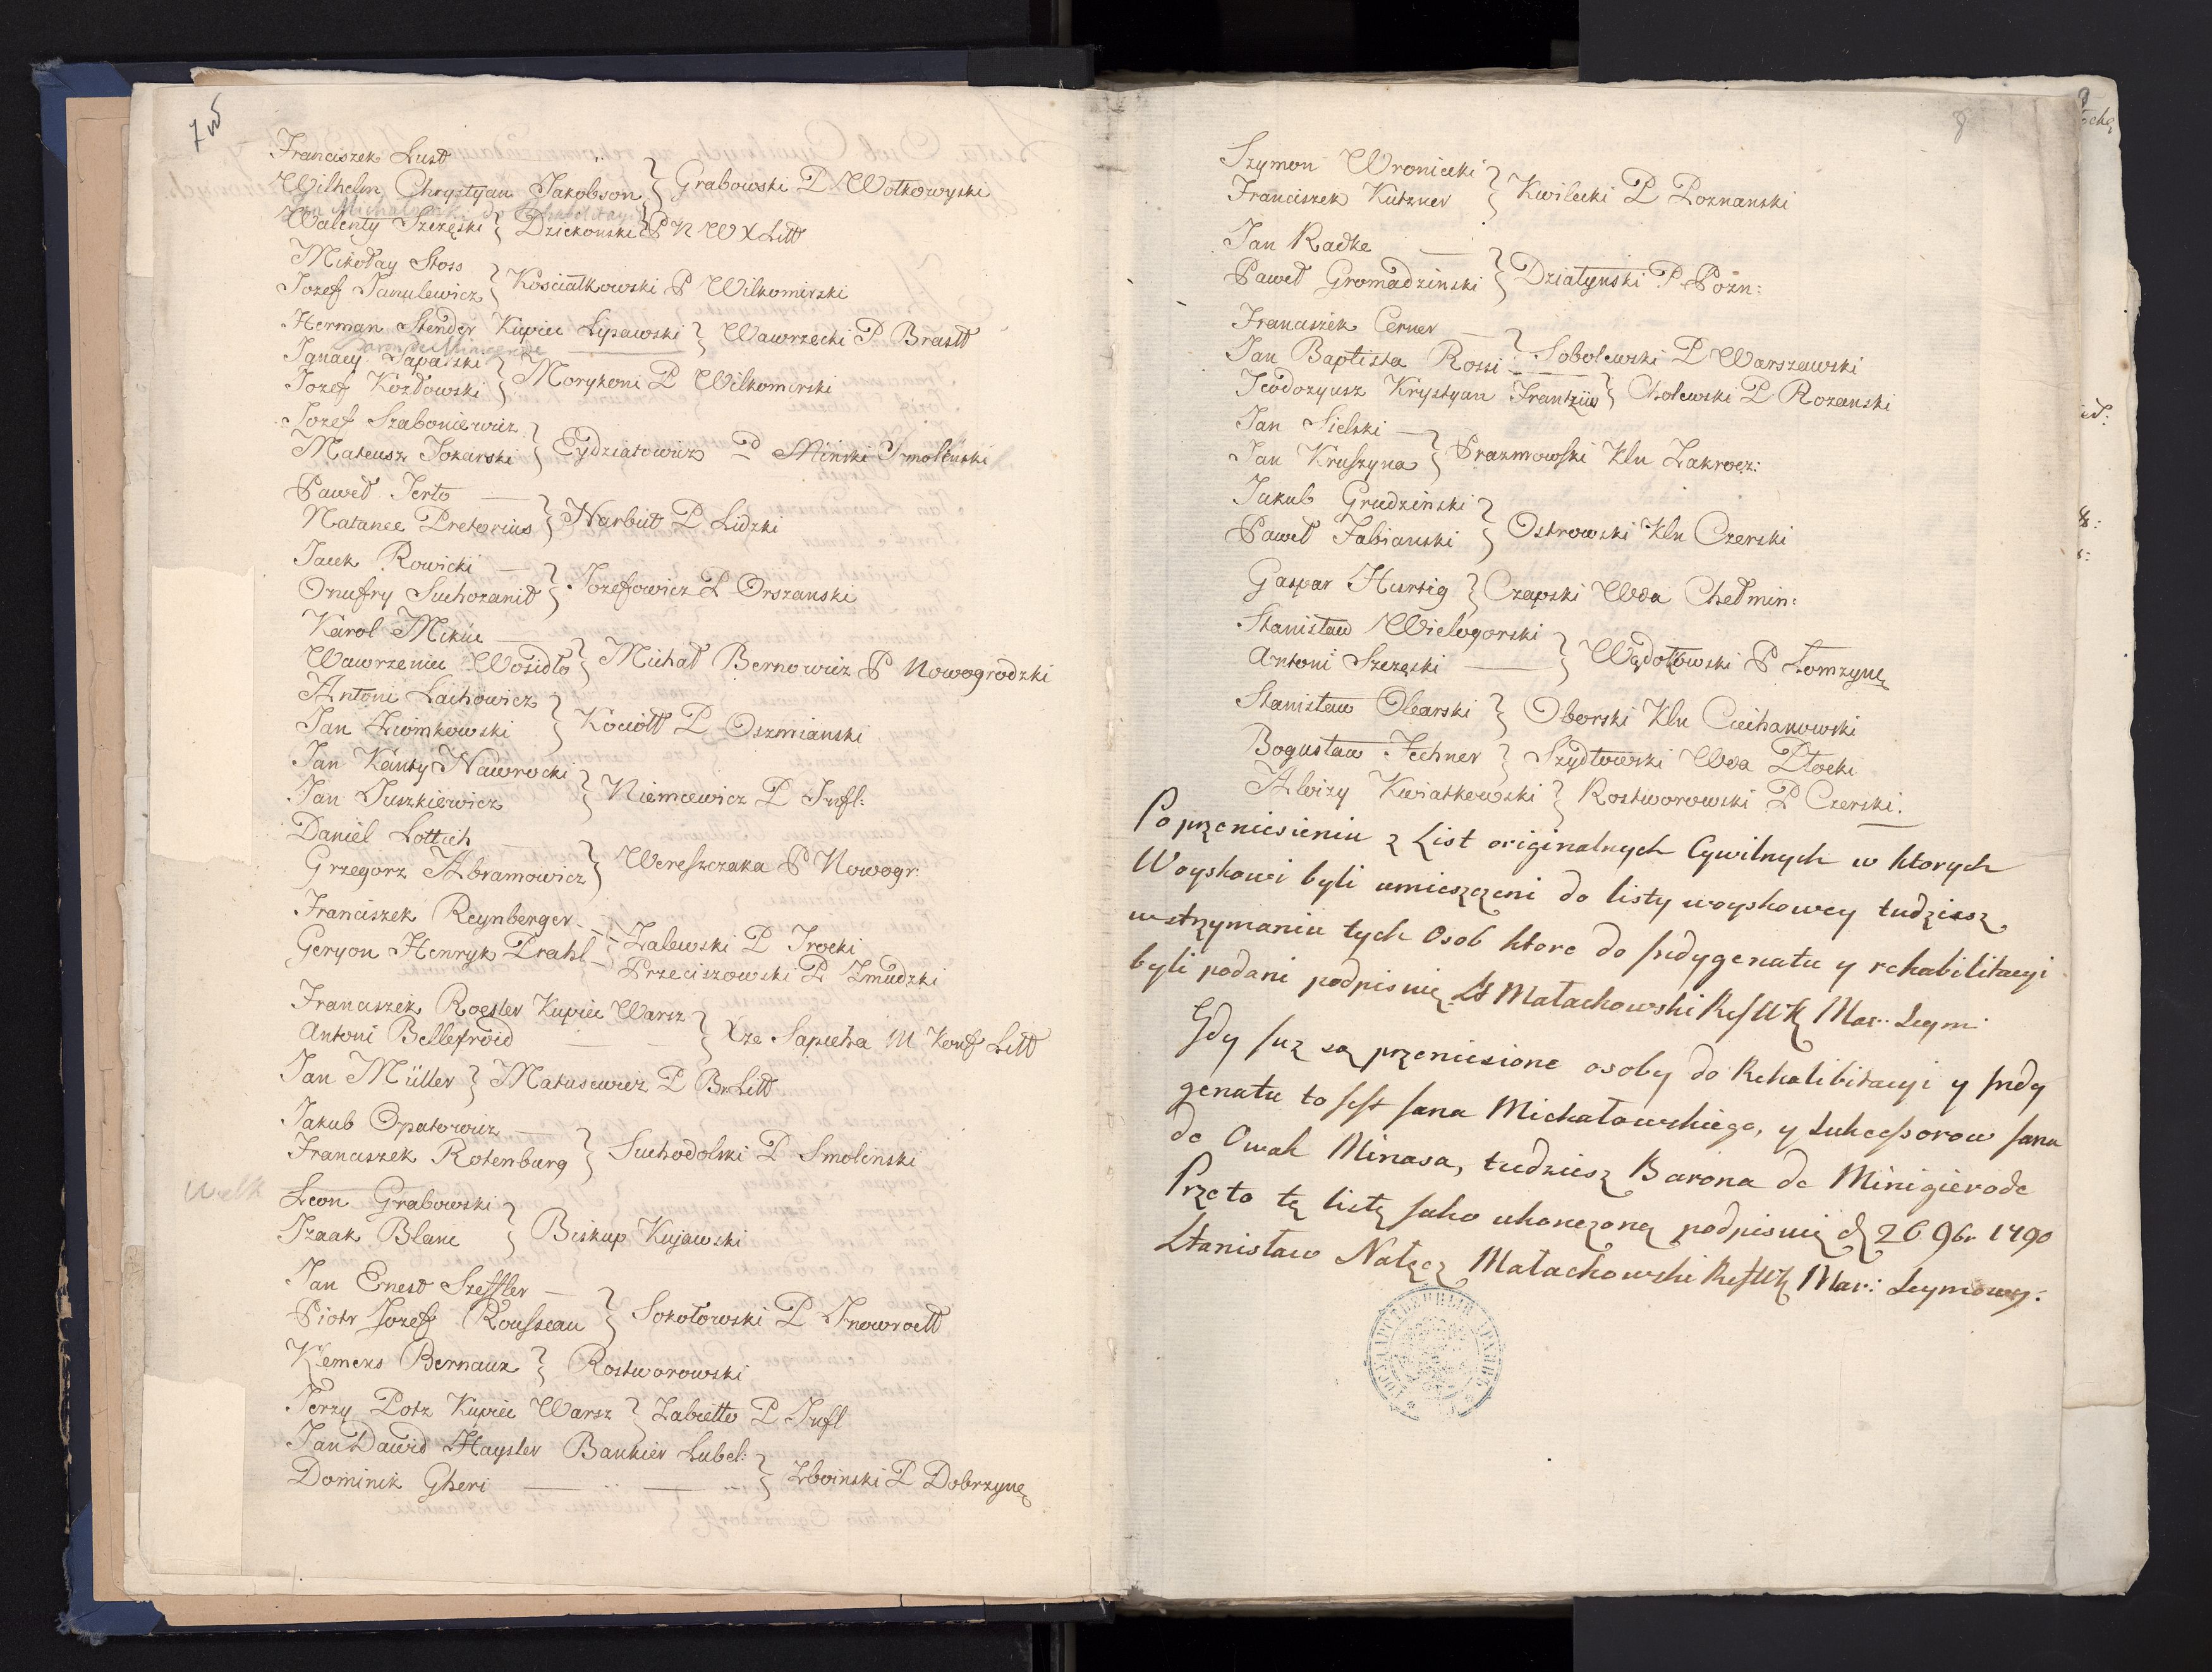 7
Franciszek Lust
Wilhelm Chrystyan Jakobson } Grabowski P Wołkowyski
Walenty Szczęski } Dziekonski P N W X Litt
Mikołay Stoss
Jozef Janulewicz } Kosciałkowski P Wilkomirski
Herman Stender Kupiec Lipawski } Wawrzecki P. Brasłt
Ignacy Saparski
Jozef Kozłowski } Morykoni P Wilkomirski
Jozef Szaboniewicz
Mateusz Tokarski } Eydziatowicz P Minski Smolenski
Paweł Ferto
Natanee Pretorius } Narbut P Lidzki
Jacek Rowicki
Onufry Suchozanit } Jozefowicz P Orszanski
Karol Mikuc
Wawrzeniec Wosidło } Michał Bernowicz P Nowogrodzki
Antoni Lachowicz
Jan Zwonkowski } Kociołł P Oszmianski
Jan Kanty Nawrocki
Jan Juszkiewicz } Niemcewicz P Infl:
Daniel Lottich
Grzegorz Abramowicz } Wereszczaka P Nowogr:
Franciszek Reynberger
Geryon Henryk Prahl } Zalewski P Trocki
Przeciszowski P Zmudzki
Franciszek Roesler Kupiec Warsz
Antoni Bellefroid } Xże Sapieha M Konf Litt
Jan Müller } Matusewicz P Br Litt
Jakub Opatowicz
Franciszek Rotenburg } Suchodolski P Smolinski
Leon Grabowski
Izaak Blanc } Biskup Kujawski
Jan Ernest Szeffler
Piotr Jozef Rousseau } Sokołowski P Inowrocłł
Klemens Bernaux } Rostworowski
Jerzy Potz Kupiec Warsz } Zabiełło P Infl
Jan Dawid Haysler Bankier Lubel:
Dominik Gheri } Zboinski P Dobrzynę
8
Szymon Wroniecki
Franciszek Kutzner } Kwilecki P Poznanski
Jan Radke
Paweł Gromadzinski } Działynski P Pozn:
Franciszek Cerner
Jan Baptista Rossi } Sobolewski P Warszawski
Teodozyusz Krystyan Frantzius } Cholewski P Rozanski
Jan Sielski
Jan Kruszyna } Prazmowski Kln Zakrocz:
Jakub Grudzinski
Paweł Fabianski } Ostrowski Kln Czerski
Gaspar Hurtig } Czapski Wda Chełmin:
Stanisław Wielogorski
Antoni Szczęski } Wądołowski P Łomzynę
Stanisław Olearski } Oborski Kln Ciechanowski
Bogusław Fechner } Szydłowski Wda Płocki
Alwizy Kwiatkowski } Rostworowski P Czerski.
Po przeniesieniu z List originalnych Cywilnych w ktorych
Woyskowi byli umieszczeni do listy woyskowey tudziesz
wstrzymaniu tych Osob ktore do Indygenatu y rehabilitacyi
byli podani podpisuię St Małachowski RefWK Mar: Seym:
Gdy juz są przeniesione osoby do Rehabilitacyi y Indy
genatu to jest Jana Michałowskiego, y Sukcessorow Jana
de Owak Minasa, tudziesz Barona de Minigierode
Przeto tę listę jako ukonczoną podpisuię d 26 9br 1790
Stanisław Nałęcz Małachowski RefWK Mar: Seymowy.